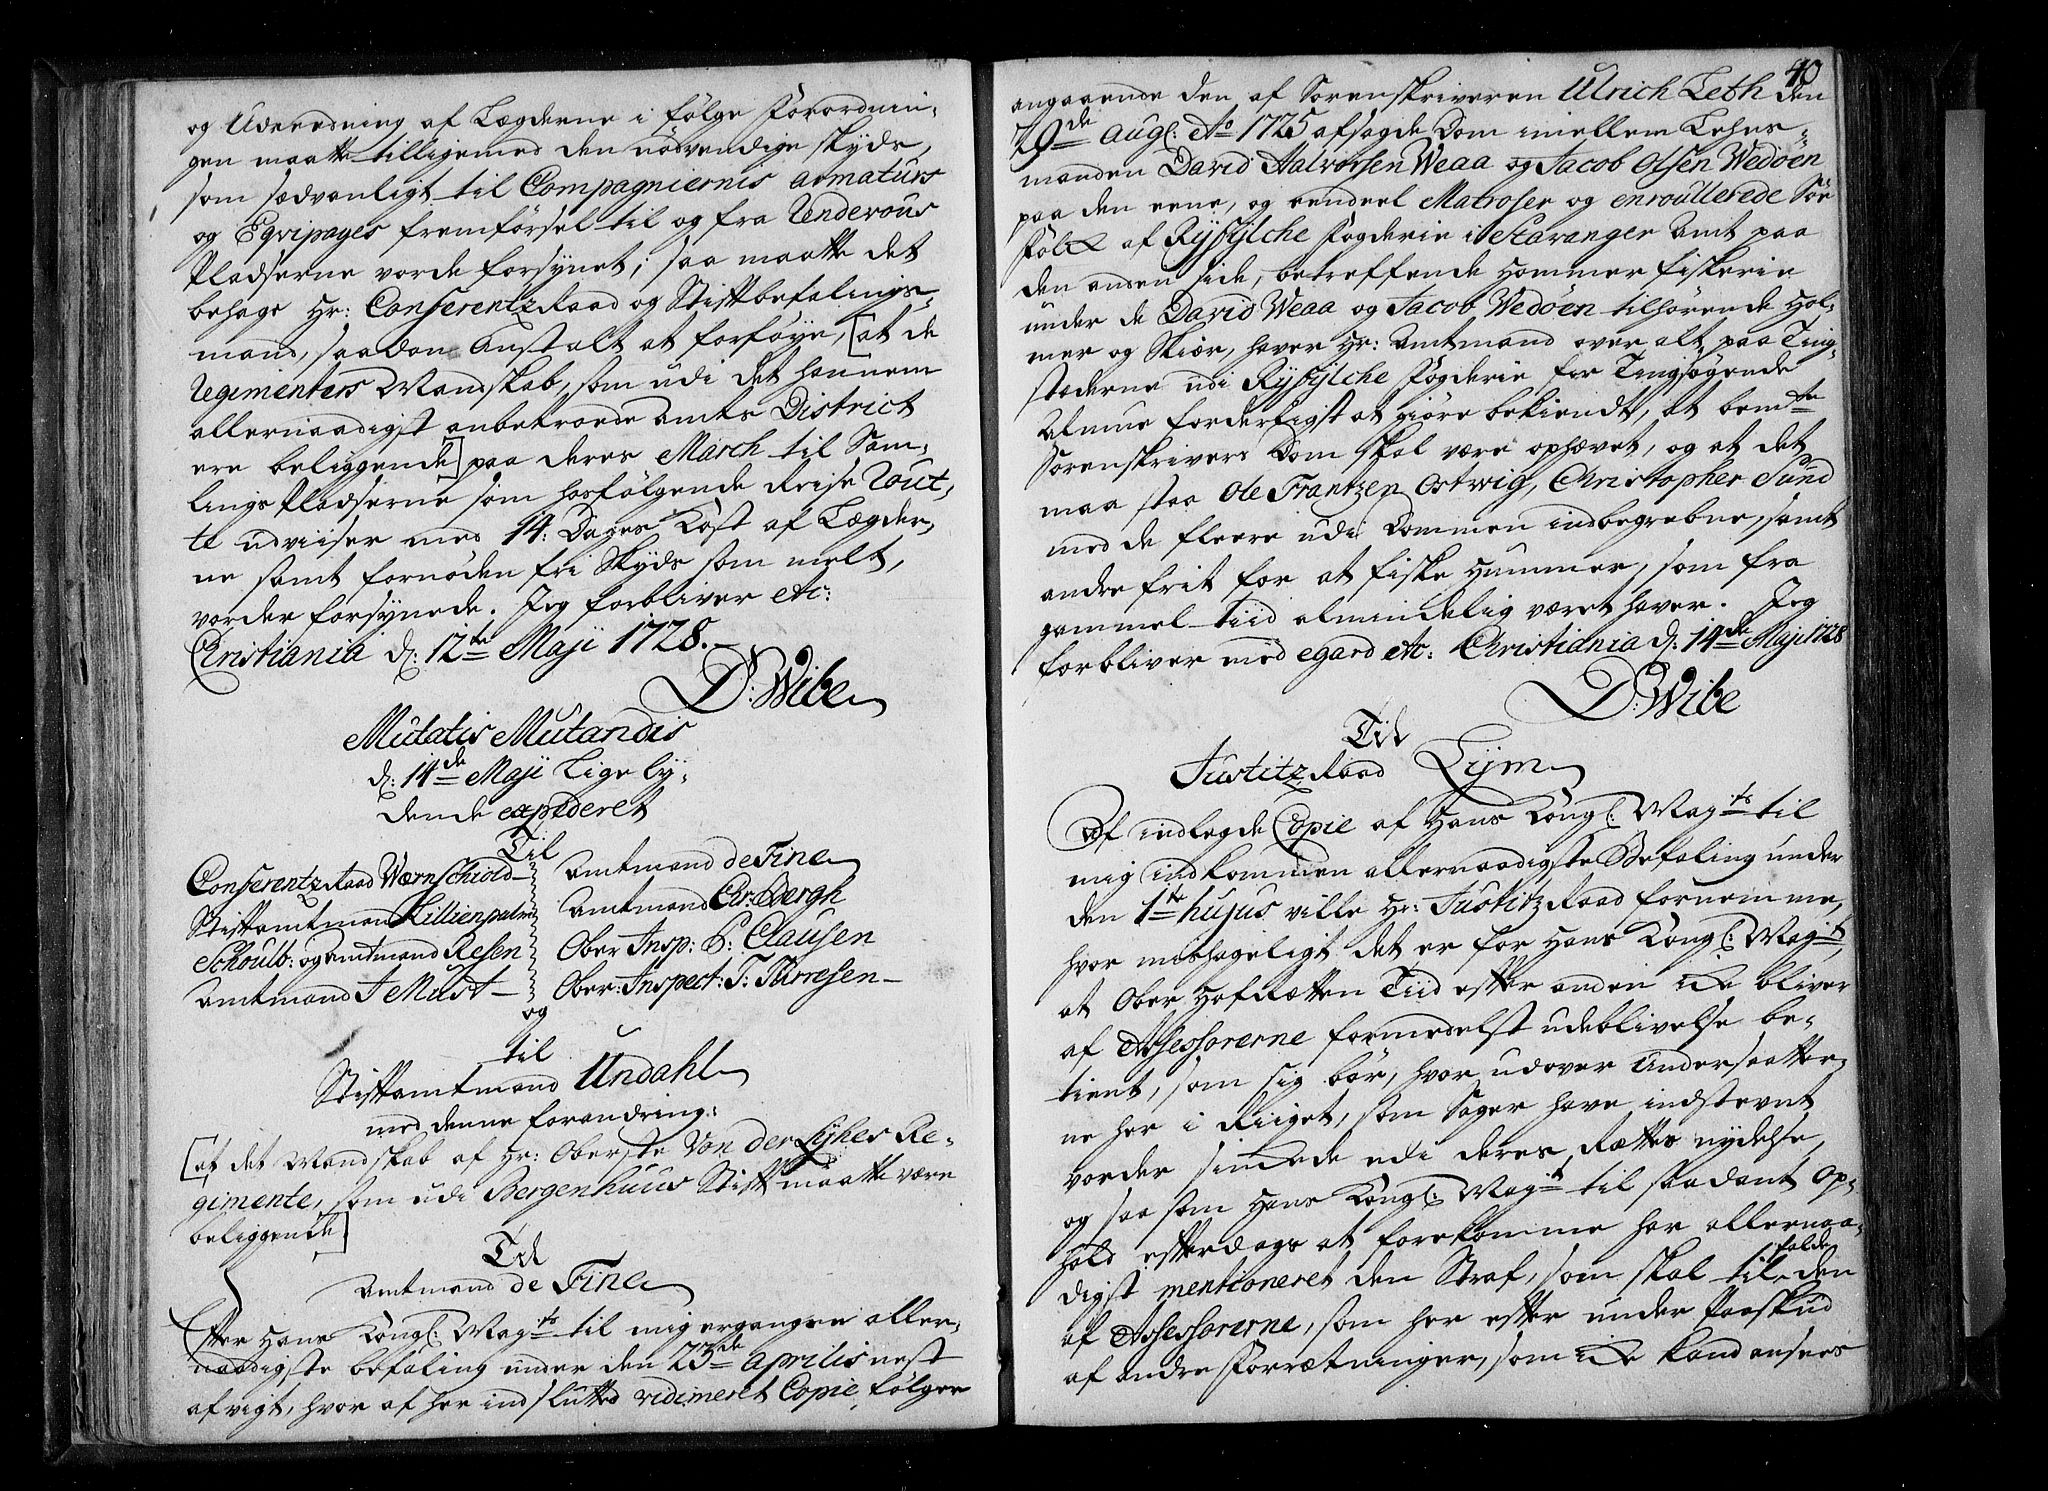 og Udreedning af Lægderne i følge Forordnin-
gen maatte tilligemed den nødvendige skyds,
som sædvanligt til Compagniernis armaturs
og Eqvipages fremførsel til og fra Rendevous
Pladserne vorde forsynet; saa maatte det
behage Hr: Conferentz Raad og Stiftbefalings-
mand, saadan Anstalt at forføye, [at de
Regimenters Mandskab, som udi det hannem
allernaadigst anbetroede Amts District
ere beliggende] paa deres March til Sam-
lings Pladserne som hosfølgende Reise Rout-
te udviiser med 14: Dages Kost af Lægder-
ne samt fornøden fri Skyds som melt,
vorder forsynede. Jeg forbliver etc:
Christiania d: 12te Maji 1728.-
D: Wibe
Mutatis Mutandis
d: 14de Maji lige ly-
dende expederet
Til
Conferentz Raad Wærnschiold
Stiftamtmand Lillienpalm
Schoulb: og Amtmand Resen
Amtmand J Must
Amtmand de Fine
Amtmand Chr: Bergh
Ober Insp: P: Clausen
Ober: Inspect: T: Turresen
og
til
Stiftamtmand Undahl
med denne forandring:
[at det Mandskab af Hr: Oberste Von der Lyhes Re-
gimente, som udi Bergenhuus Stift maatte være
beliggende]
Til
Amtmand de Fine
Efter Hans Kongl: Mayts til mig ergangen aller-
naadigste befaling under den 23de aprilis nest
afvigt, hvor af her indsluttes vidimeret Copie, følger
40
angaaende den af Sorenskriveren Ulrich Leth den
29de aug: Ao 1725 afsagde Dom imellem Lehns-
manden David Halvorsen Weaa og Jacob Olsen Wedøen
paa den eene, og eendeel Matroser og enroullerede Søe
Folck af Ryfylche Fogderie i Stavanger Amt paa
den anden side, betreffende Hommer fiskerie
under de David Weaa og Jacob Wedøen tilhørende Hol-
mer og Skiær, haver Hr: Amtmand over alt paa Ting-
stæderne udi Ryfylche Fogderie for Tingsøgende
Almue forderligst at giøre bekiendt, at bemte
Sorenskrivers Dom skal være ophævet, og at det
maa staa Ole Frantzen Ostwig, Christopher Sund
med de fleere udi Dommen indbegrebne, samt
andre frit for at fiske Hummer, som fra
gammel tiid almindelig været haver. Jeg
forbliver med egard etc: Christiania d: 14de Maji 1728
D: Wibe
Til
Justitz Raad Lijm
Af indlagde Copie af Hans Kongl: Mayts til
mig indkommen allernaadigste Befaling under
den 1te hujus ville Hr: Justitz Raad fornemme,
hvor mishageligt det er for Hans Kongl: Mayt,
at Ober Hofrætten Tiid efter anden icke bliver
af Assessorerne formedelst udeblivelse be-
tient, som sig bør, hvor udover Undersaatter-
ne her i Riiget, som Sager have indstevnt
vorder sinckede udi deres Rættes nydelse,
og saa som Hans Kongl: Mayt til saadant Op-
hold efterdags at forekomme har allernaa-
digst mentioneret den Straf, som skal tilfalde den
af Assessorerne, som her efter under Paaskud
af andre Forrætninger, som icke kand ansees